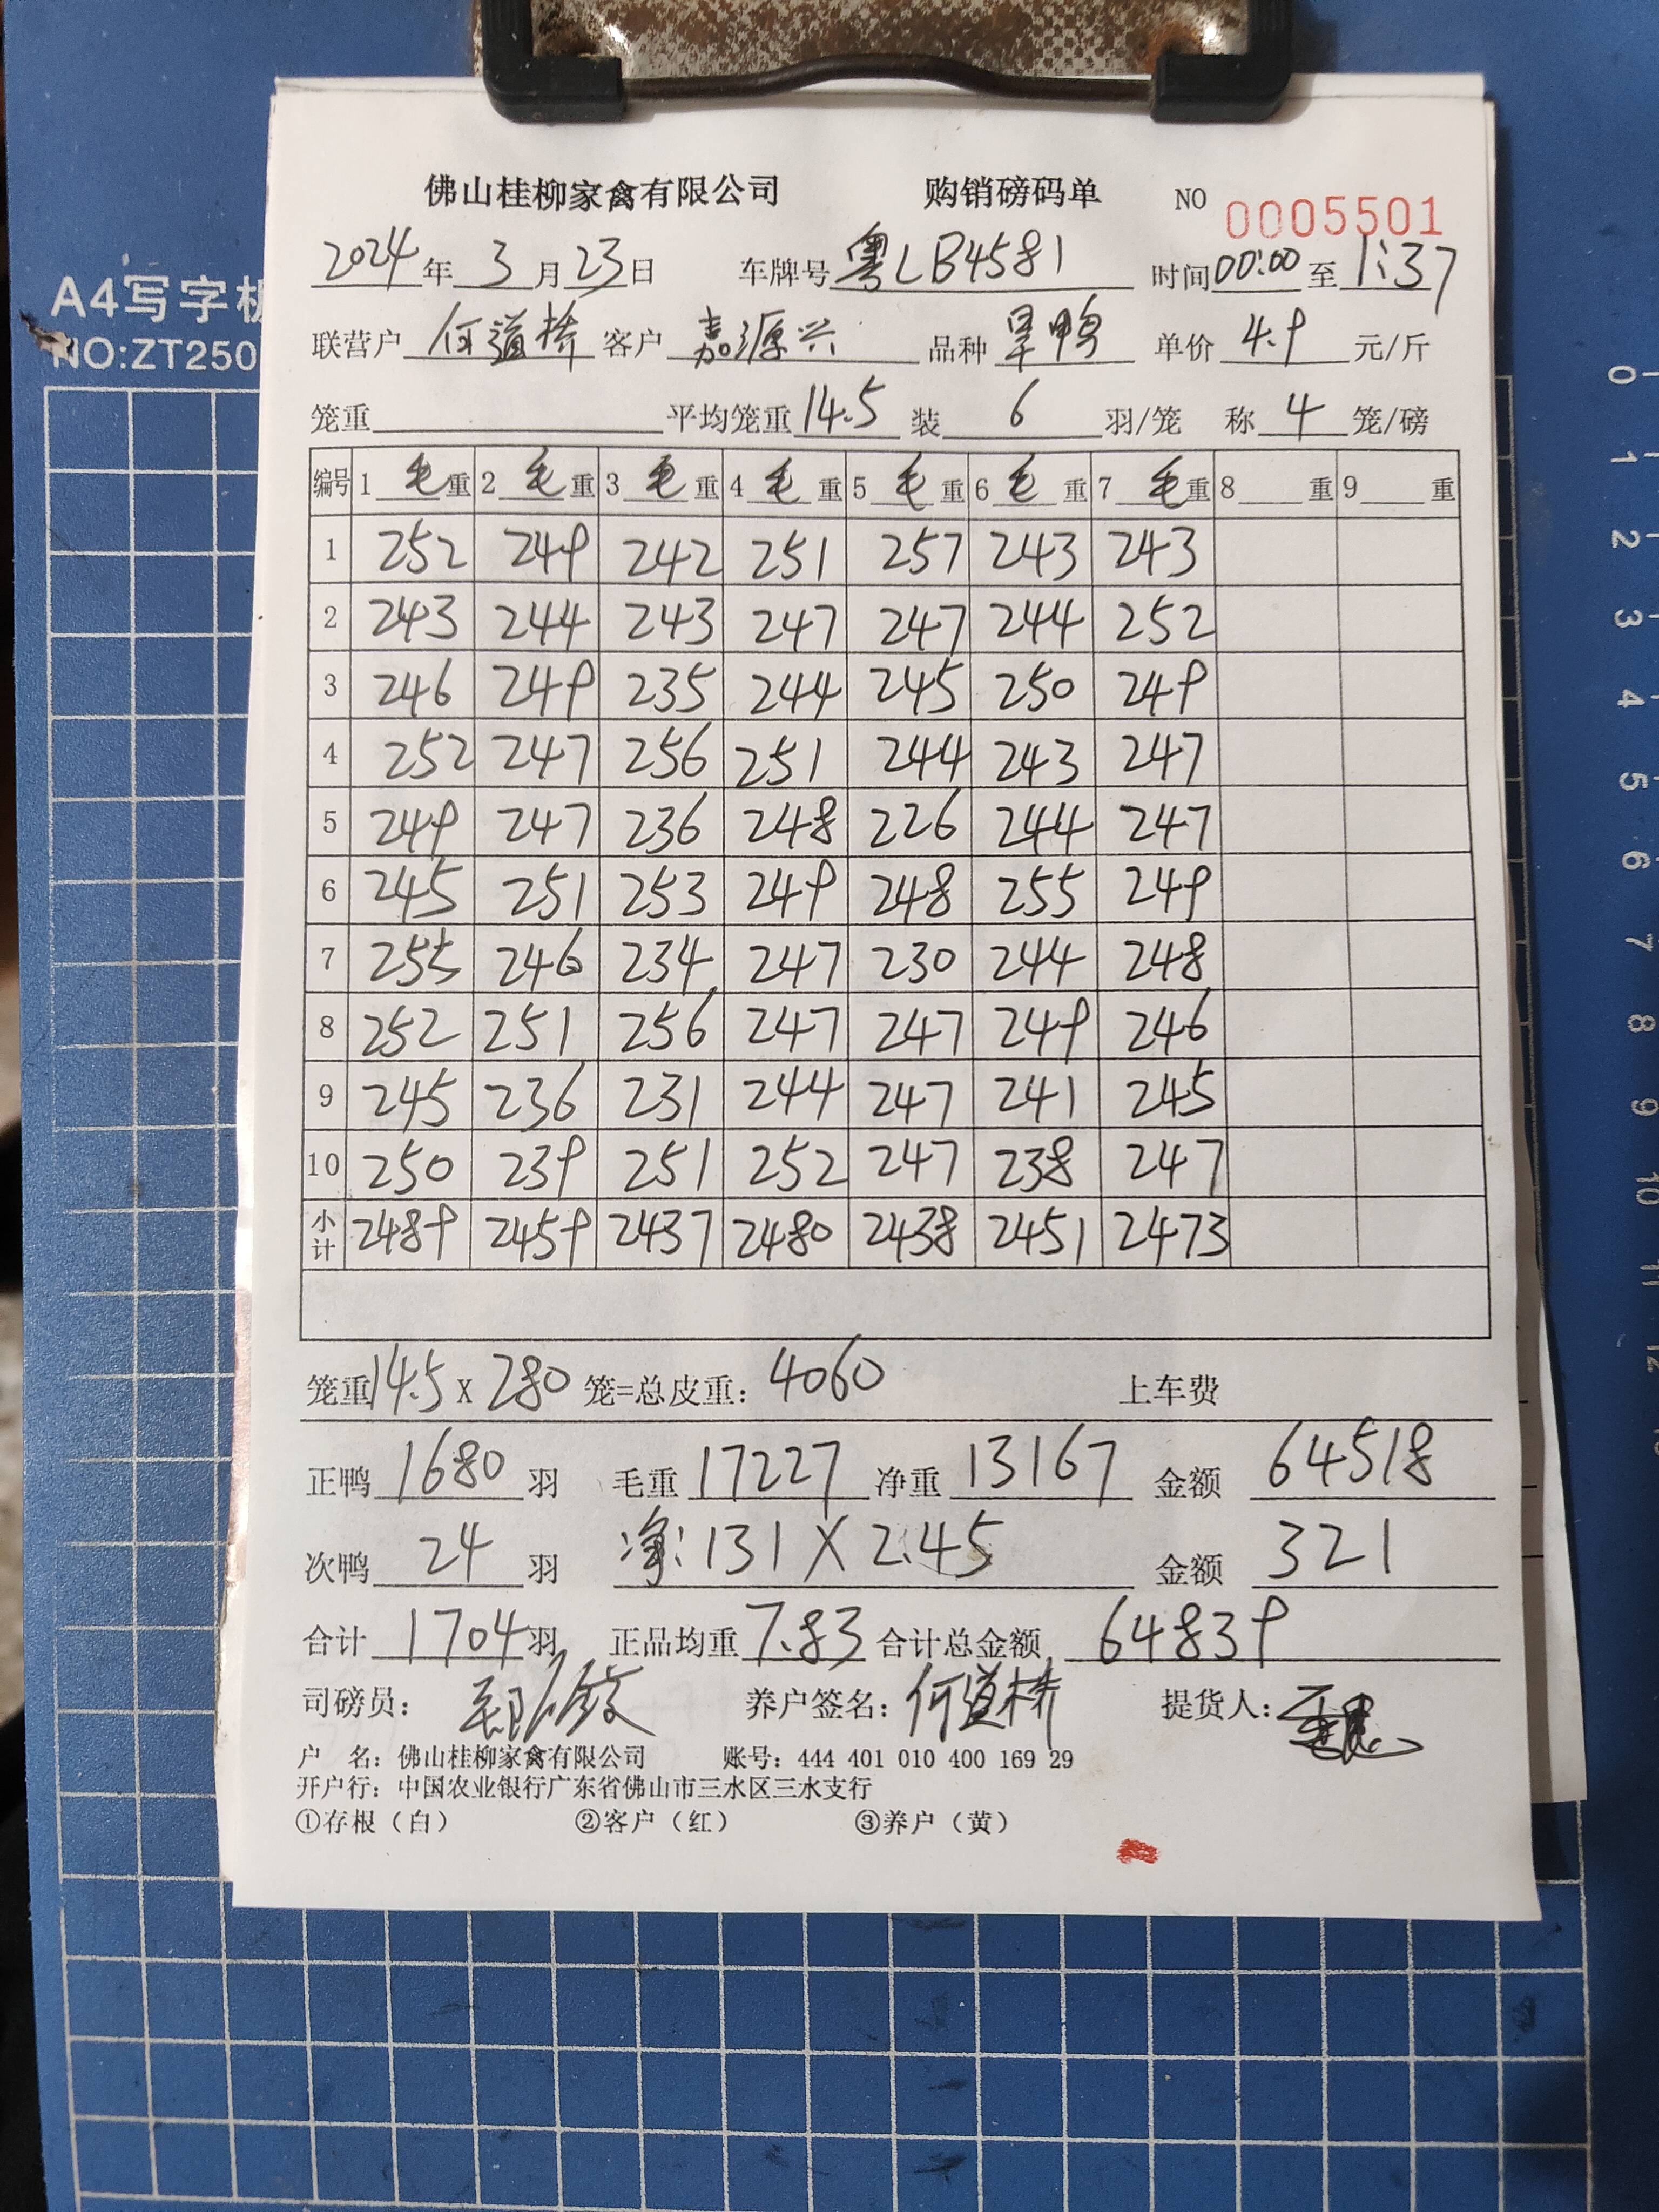 佛山桂柳家禽有限公司 购销磅码单 NO 0005501
2024年 3月23日 车牌号 粤LB4581 时间00:00至1:37
A4写字板
NO:ZT250
联营户 何道桥 客户 嘉源兴 品种 旱鸭 单价 4.9 元/斤
笼重 平均笼重14.5 装 6 羽/笼 称 4 笼/磅
编号 1 毛重 2 毛重 3 毛重 4 毛重 5 毛重 6 毛重 7 毛重 8 重 9 重
1 252 249 242 251 257 243 243
2 243 244 243 247 247 244 252
3 246 249 235 244 245 250 249
4 252 247 256 251 244 243 247
5 249 247 236 248 226 244 247
6 245 251 253 249 248 255 249
7 255 246 234 247 230 244 248
8 252 251 256 247 247 249 246
9 245 236 231 244 247 241 245
10 250 239 251 252 247 238 247
小计 2489 2459 2437 2480 2438 2451 2473
笼重14.5 X 280 笼=总皮重: 4060 上车费
正鸭 1680 羽 毛重 17227 净重 13167 金额 64518
次鸭 24 羽 净:131 X 2.45 金额 321
合计 1704羽 正品均重 7.83 合计总金额 64839
司磅员: 养户签名: 何道桥 提货人:
户 名: 佛山桂柳家禽有限公司 账号: 444 401 010 400 169 29
开户行: 中国农业银行广东省佛山市三水区三水支行
①存根（白） ②客户（红） ③养户（黄）
0
1
2
3
4
5
6
7
8
9
10
11
12